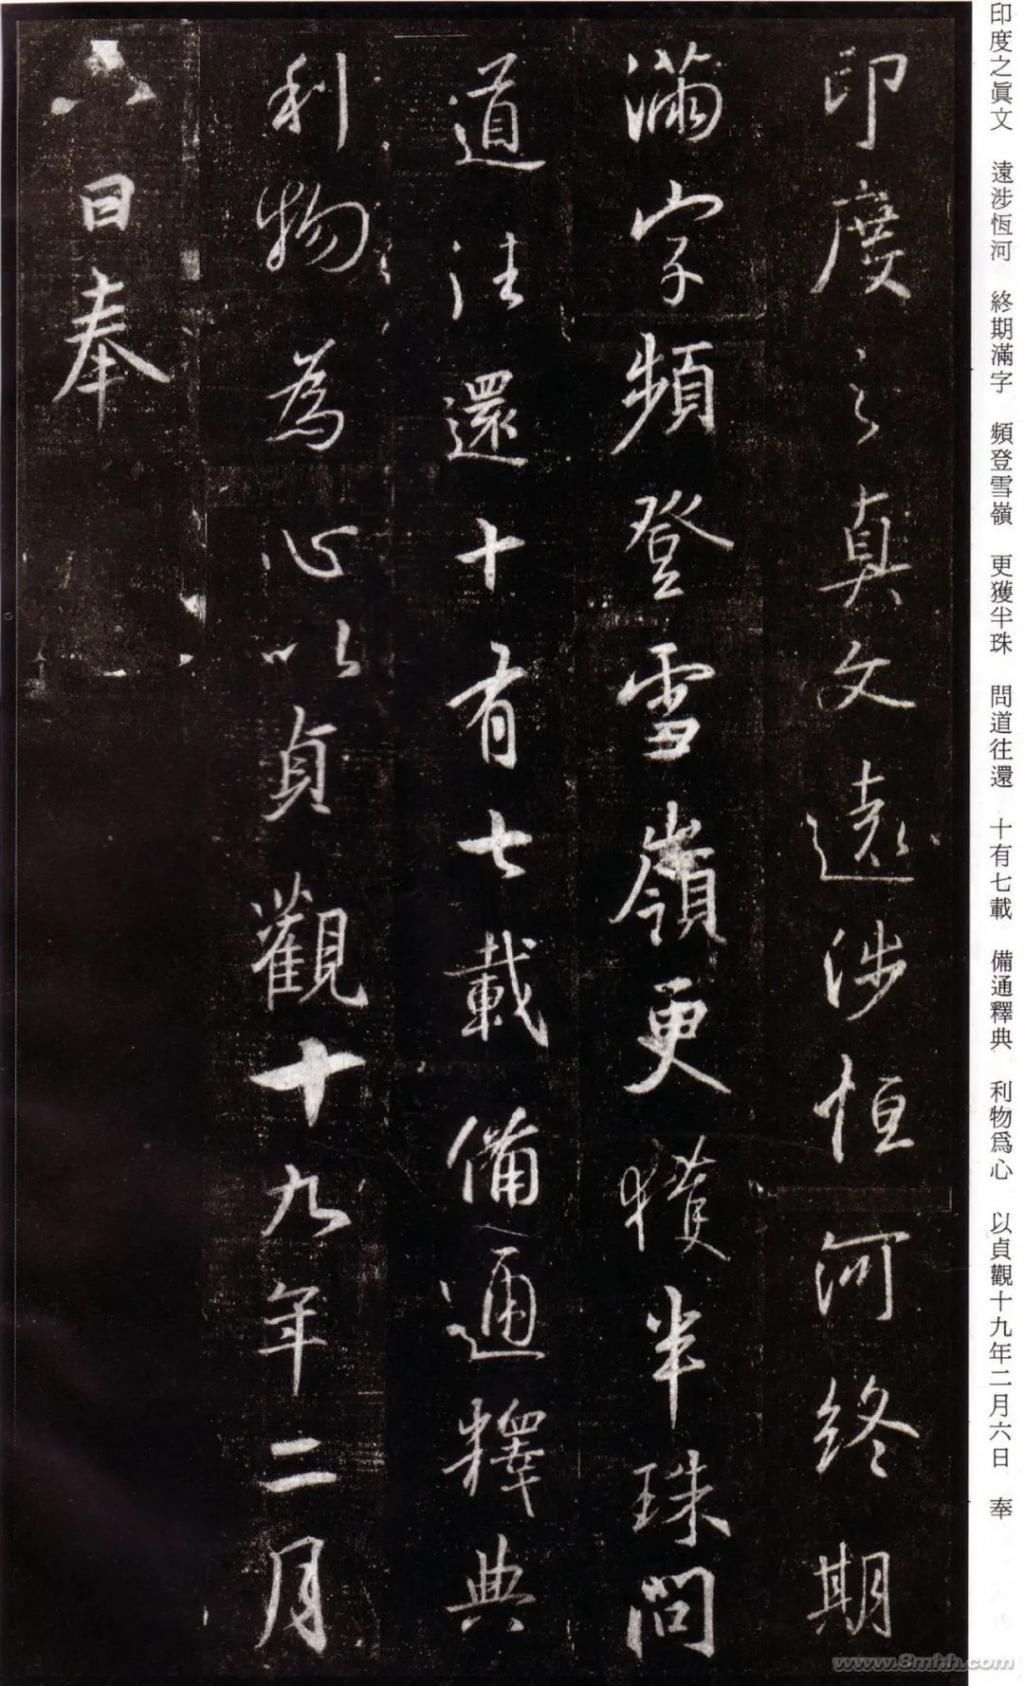 印度之眞文　遠涉恆河　終期滿字　頻登雪嶺　更獲半珠　問道往還　十有七載　備通釋典　利物爲心　以貞觀十九年二月六日　奉
印度之真文遠涉恒河終期
滿字頻登雪嶺更獲半珠問
道往還十有七載備通釋典
利物為心以貞觀十九年二月
六日奉
www.8mhh.com